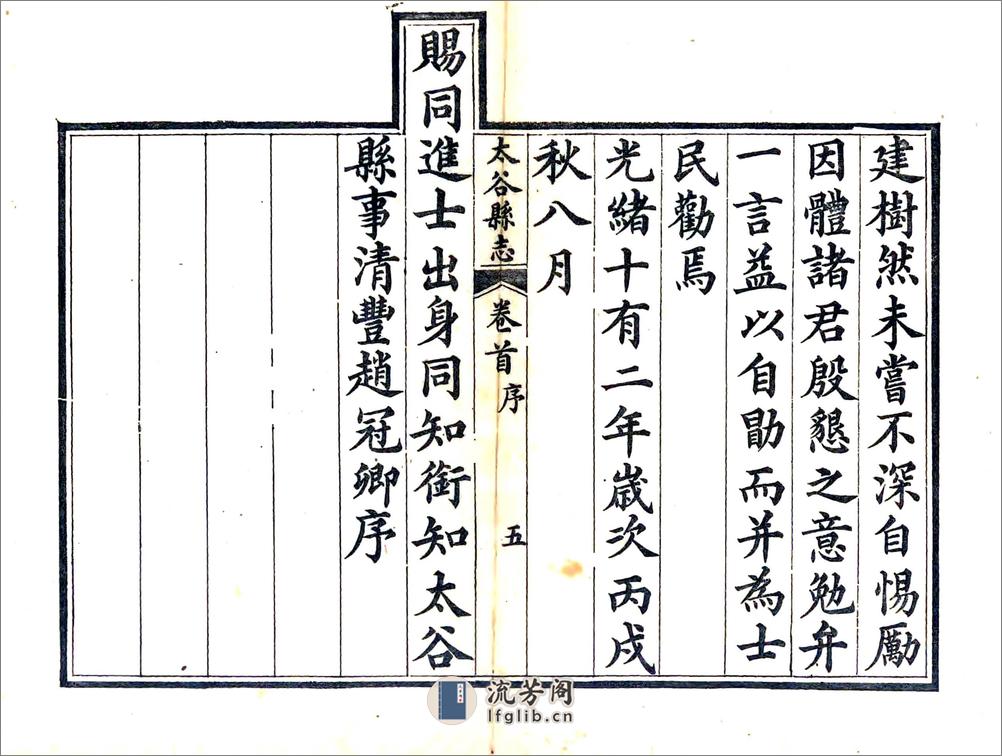 建樹然未嘗不深自惕厲
因體諸君殷懇之意勉弁
一言益以自勖而并為士
民勸焉
光緒十有二年歲次丙戌
秋八月
太谷縣志 卷首 序 五
賜同進士出身同知銜知太谷
縣事清豐趙冠卿序
流芳阁
lfglib.cn